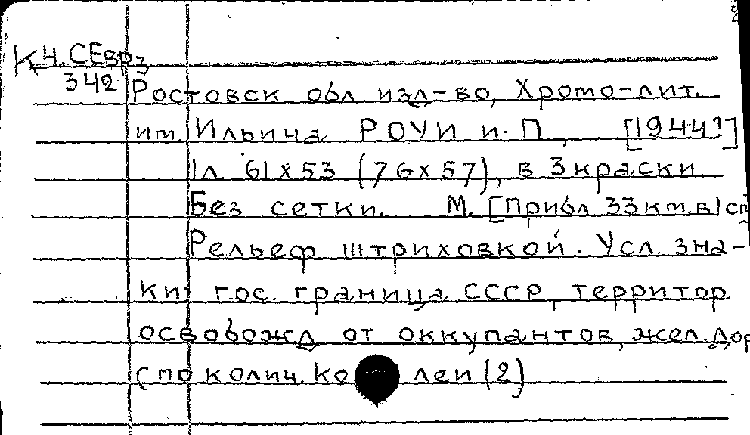 К4. СЕврз
342
Ростовск обл изд-во, Хромо-лит.
им. Ильича РОУИ и. П, [1944?]
1л 61х53 (76х57), в 3 краски
Без сетки. М. [Прибл 33 км в 1 сп
Рельеф штриховкой. Усл зна-
ки гос. граница СССР, территор
освобожд от оккупантов, жел. дор
(по колич. ко леи (2)